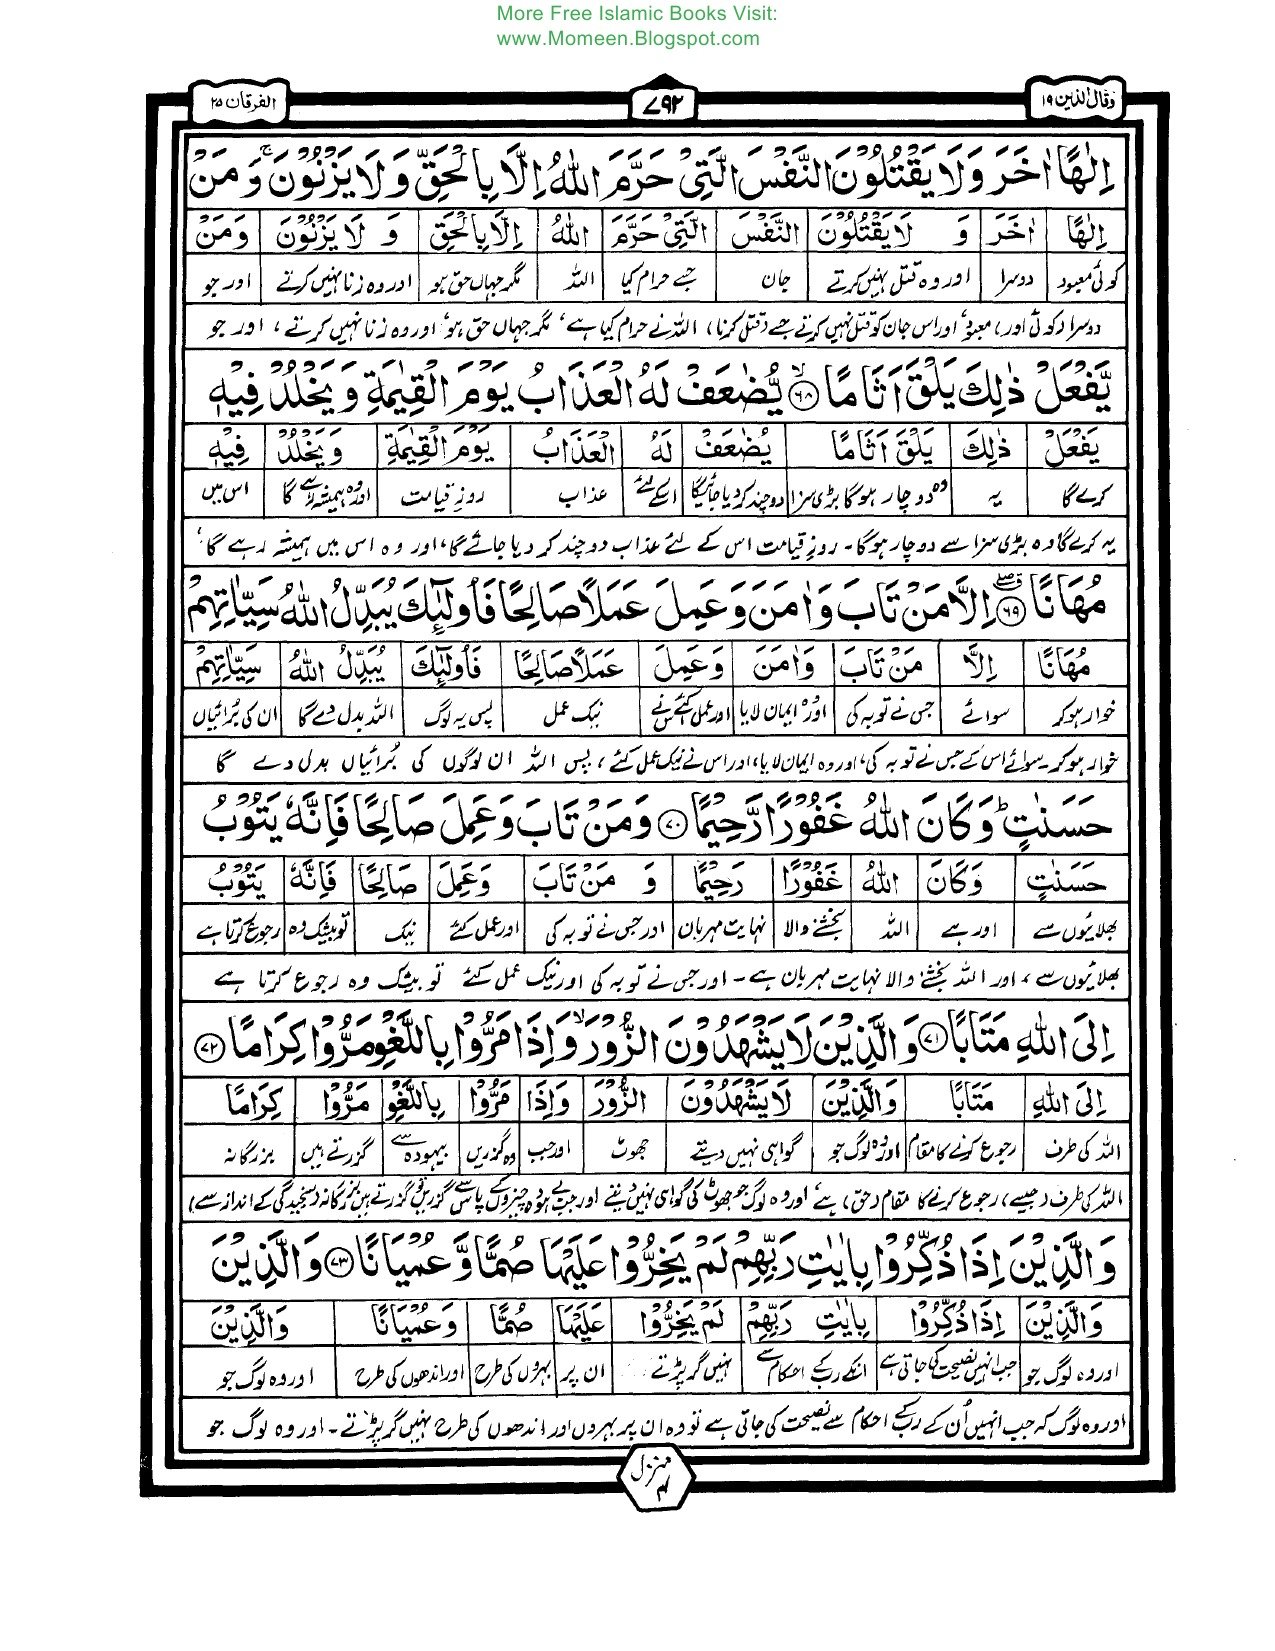 More Free Islamic Books Visit:
www.Momeen.Blogspot.com
وقال الذین ۱۹
۷۹۲
الفرقان ۲۵
اِلٰهًا اٰخَرَ وَلَا يَقْتُلُوْنَ النَّفْسَ الَّتِيْ حَرَّمَ اللّٰهُ اِلَّا بِالْحَقِّ وَلَا يَزْنُوْنَ ۚ وَمَنْ
اِلٰهًا اٰخَرَ وَ لَا يَقْتُلُوْنَ النَّفْسَ الَّتِيْ حَرَّمَ اللّٰهُ اِلَّا بِالْحَقِّ وَ لَا يَزْنُوْنَ وَمَنْ
کوئی معبود دوسرا اور وہ قتل نہیں کرتے جان جسے حرام کیا اللہ مگر جہاں حق ہو اور وہ زنا نہیں کرتے اور جو
دوسرا (کوئی اور) معبود، اور اس جان کو قتل نہیں کرتے جسے (قتل کرنا) اللہ نے حرام کیا ہے، مگر جہاں حق ہو، اور وہ زنا نہیں کرتے، اور جو
يَّفْعَلْ ذٰلِكَ يَلْقَ اَثَامًا ۙ۶۸ يُّضٰعَفْ لَهُ الْعَذَابُ يَوْمَ الْقِيٰمَةِ وَيَخْلُدْ فِيْهٖ
يَفْعَلْ ذٰلِكَ يَلْقَ اَثَامًا يُضٰعَفْ لَهُ الْعَذَابُ يَوْمَ الْقِيٰمَةِ وَيَخْلُدْ فِيْهٖ
کرے گا یہ وہ دوچار ہوگا بڑی سزا دوچند کردیا جائیگا اسکے لئے عذاب روزِ قیامت اور وہ ہمیشہ رہے گا اس میں
یہ کرے گا وہ بڑی سزا سے دوچار ہوگا۔ روزِ قیامت اس کے لئے عذاب دوچند کر دیا جائے گا، اور وہ اس میں ہمیشہ رہے گا،
مُهَانًا ۶۹ اِلَّا مَنْ تَابَ وَاٰمَنَ وَعَمِلَ عَمَلًا صَالِحًا فَاُولٰٓئِكَ يُبَدِّلُ اللّٰهُ سَيِّاٰتِهِمْ
مُهَانًا اِلَّا مَنْ تَابَ وَاٰمَنَ وَعَمِلَ عَمَلًا صَالِحًا فَاُولٰٓئِكَ يُبَدِّلُ اللّٰهُ سَيِّاٰتِهِمْ
خوار ہو کر سوائے جس نے توبہ کی اور وہ ایمان لایا اور عمل کئے اس نے نیک عمل پس یہ لوگ اللہ بدل دے گا ان کی برائیاں
خوار ہو کر۔ سوائے اس کے جس نے توبہ کی، اور وہ ایمان لایا، اور اس نے نیک عمل کئے، پس اللہ ان لوگوں کی بُرائیاں بدل دے گا
حَسَنٰتٍ ؕ وَكَانَ اللّٰهُ غَفُوْرًا رَّحِيْمًا ۷۰ وَمَنْ تَابَ وَعَمِلَ صَالِحًا فَاِنَّهٗ يَتُوْبُ
حَسَنٰتٍ وَكَانَ اللّٰهُ غَفُوْرًا رَحِيْمًا وَ مَنْ تَابَ وَعَمِلَ صَالِحًا فَاِنَّهٗ يَتُوْبُ
بھلائیوں سے اور ہے اللہ بخشنے والا نہایت مہربان اور جس نے توبہ کی اور عمل کئے نیک تو بیشک وہ رجوع کرتا ہے
بھلائیوں سے، اور اللہ بخشنے والا نہایت مہربان ہے۔ اور جس نے توبہ کی اور نیک عمل کئے تو بیشک وہ رجوع کرتا ہے
اِلَى اللّٰهِ مَتَابًا ۷۱ وَالَّذِيْنَ لَا يَشْهَدُوْنَ الزُّوْرَ ۙ وَاِذَا مَرُّوْا بِاللَّغْوِ مَرُّوْا كِرَامًا ۷۲
اِلَى اللّٰهِ مَتَابًا وَالَّذِيْنَ لَا يَشْهَدُوْنَ الزُّوْرَ وَاِذَا مَرُّوْا بِاللَّغْوِ مَرُّوْا كِرَامًا
اللہ کی طرف رجوع کرنے کا مقام اور وہ لوگ جو گواہی نہیں دیتے جھوٹ اور جب وہ گزریں بیہودہ سے گزرتے ہیں بزرگانہ
اللہ کی طرف (جیسے) رجوع کرنے کا مقام (حق) ہے، اور وہ لوگ جو جھوٹ کی گواہی نہیں دیتے اور جب بے ہودہ چیزوں کے پاس سے گزریں تو گزرتے ہیں بزرگانہ (سنجیدگی کے انداز سے)
وَالَّذِيْنَ اِذَا ذُكِّرُوْا بِاٰيٰتِ رَبِّهِمْ لَمْ يَخِرُّوْا عَلَيْهَا صُمًّا وَّعُمْيَانًا ۷۳ وَالَّذِيْنَ
وَالَّذِيْنَ اِذَا ذُكِّرُوْا بِاٰيٰتِ رَبِّهِمْ لَمْ يَخِرُّوْا عَلَيْهَا صُمًّا وَعُمْيَانًا وَالَّذِيْنَ
اور وہ لوگ جو جب انہیں نصیحت کی جاتی ہے انکے رب کے احکام سے نہیں گر پڑتے ان پر بہروں کی طرح اور اندھوں کی طرح اور وہ لوگ جو
اور وہ لوگ کہ جب انہیں اُن کے رب کے احکام سے نصیحت کی جاتی ہے تو وہ ان پر بہروں اور اندھوں کی طرح نہیں گر پڑتے۔ اور وہ لوگ جو
منزل ۴